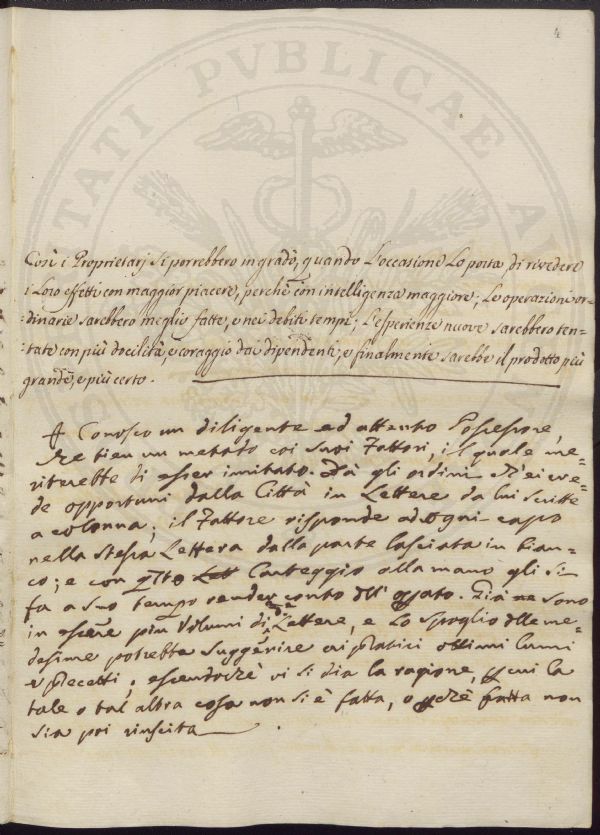 4
STATI PVBLICAE
Così i Proprietarj si porrebbero in grado, quando l'occasione lo porta, di rivedere
i loro effetti con maggior piacere, perchè con intelligenza maggiore; Le operazioni or-
:dinarie sarebbero meglio fatte, e nei debiti tempi; L'esperienze nuove sarebbero ten-
:tate con più docilità, e coraggio dai dipendenti; e finalmente sarebbe il prodotto più
grande, e più certo.
Conosco un diligente ed attento Possessore,
che tien un metodo coi suoi Fattori, il quale me-
riterebbe di esser imitato. Dà gli ordini ch'ei cre-
de opportuni dalla Città in Lettere da lui scritte
a colonna; il Fattore risponde ad ogni capo
nella stessa Lettera dalla parte lasciata in bian-
co; e con qsto Carteggio alla mano gli si
fa a suo tempo render conto dell' oprato. Già ne sono
in essere più Volumi di Lettere, e lo spoglio delle me-
desime potrebbe suggerire ai pratici ottimi lumi
e precetti; essendochè vi si dia la ragione, p cui la
tale o tal altra cosa non si è fatta, o pchè fatta non
sia poi riuscita